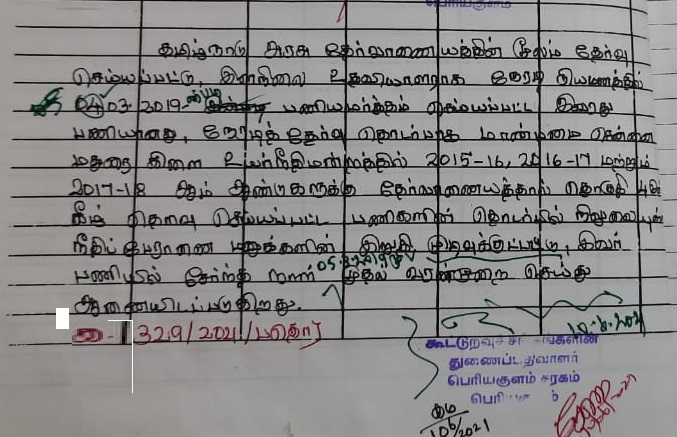 பெரியகுளம்
தமிழ்நாடு அரசு தேர்வாணையத்தின் மூலம் தேர்வு
செய்யப்பட்டு, இளநிலை உதவியாளராக நேரடி நியமனத்தில்
04.03.2019-ன்படி பணியமர்த்தம் செய்யப்பட்ட இவரது
பணியானது, நேரடித் தேர்வு தொடர்பாக மாண்பமை சென்னை
மதுரை கிளை உயர்நீதிமன்றத்தில் 2015-16, 2016-17 மற்றும்
2017-18 ஆம் ஆண்டுகளுக்கு தேர்வாணையத்தால் தொகுதி 4ன்
கீழ் தெரிவு செய்யப்பட்ட பணிகளின் தொடர்பில் நிலுவையுள்ள
நீதிப் பேராணை மனுக்களின் இறுதி முடிவுக்குட்பட்டு, இவர்
பணியில் சேர்ந்த நாள் 05.3.2019 முதல் வரன்முறை செய்து
ஆணையிடப்படுகிறது.
329/2021/பதொர்
10-6-2021
கூட்டுறவுச் சங்கங்களின்
துணைப்பதிவாளர்
பெரியகுளம் சரகம்
பெரியகுளம்
10/6/2021